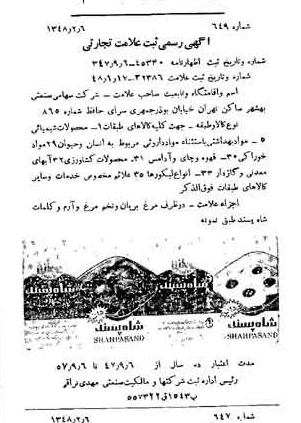 شماره ۶۴۹ ۱۳۴۸/۲/۶
آگهی رسمی ثبت علامت تجارتی
شماره وتاریخ ثبت اظهارنامه ۴۵۳۳۰-۳۴۷/۹/۶
شماره وتاریخ ثبت علامت ۳۲۳۸۶-۴۸/۱/۱۷
اسم واقامتگاه وتابعیت صاحب علامت - شرکت سهامی صنعتی
بهشهر ساکن تهران خیابان بوذرجمهری سرای حافظ شماره ۸۶۵
نوع کالا وطبقه - جهت کلیه کالاهای طبقات ۱- محصولات شیمیائی
۵ - مواد بهداشتی باستثناء مواد داروئی مربوط به انسان وحیوان ۲۹ مواد
خوراکی ۳۰- قهوه وچای وآدامس ۳۱- محصولات کشاورزی ۳۲ آبهای
معدنی وگازدار ۳۳- انواع لیکورها ۳۵ علائم مخصوص خدمات وسایر
کالاهای طبقات فوق الذکر
اجزاء علامت - دوظرف مرغ بریان وتخم مرغ وآرم وکلمات
شاه پسند طبق نمونه
شاه پسند شاه پسند
SHAHPASAND SHAHPASAND
مدت اعتبار ده سال از ۴۷/۹/۶ تا ۵۷/۹/۶
رئیس اداره ثبت شرکتها و مالکیت صنعتی مهدی نراقی
شماره ۶۴۷ ۱۳۴۸/۲/۶